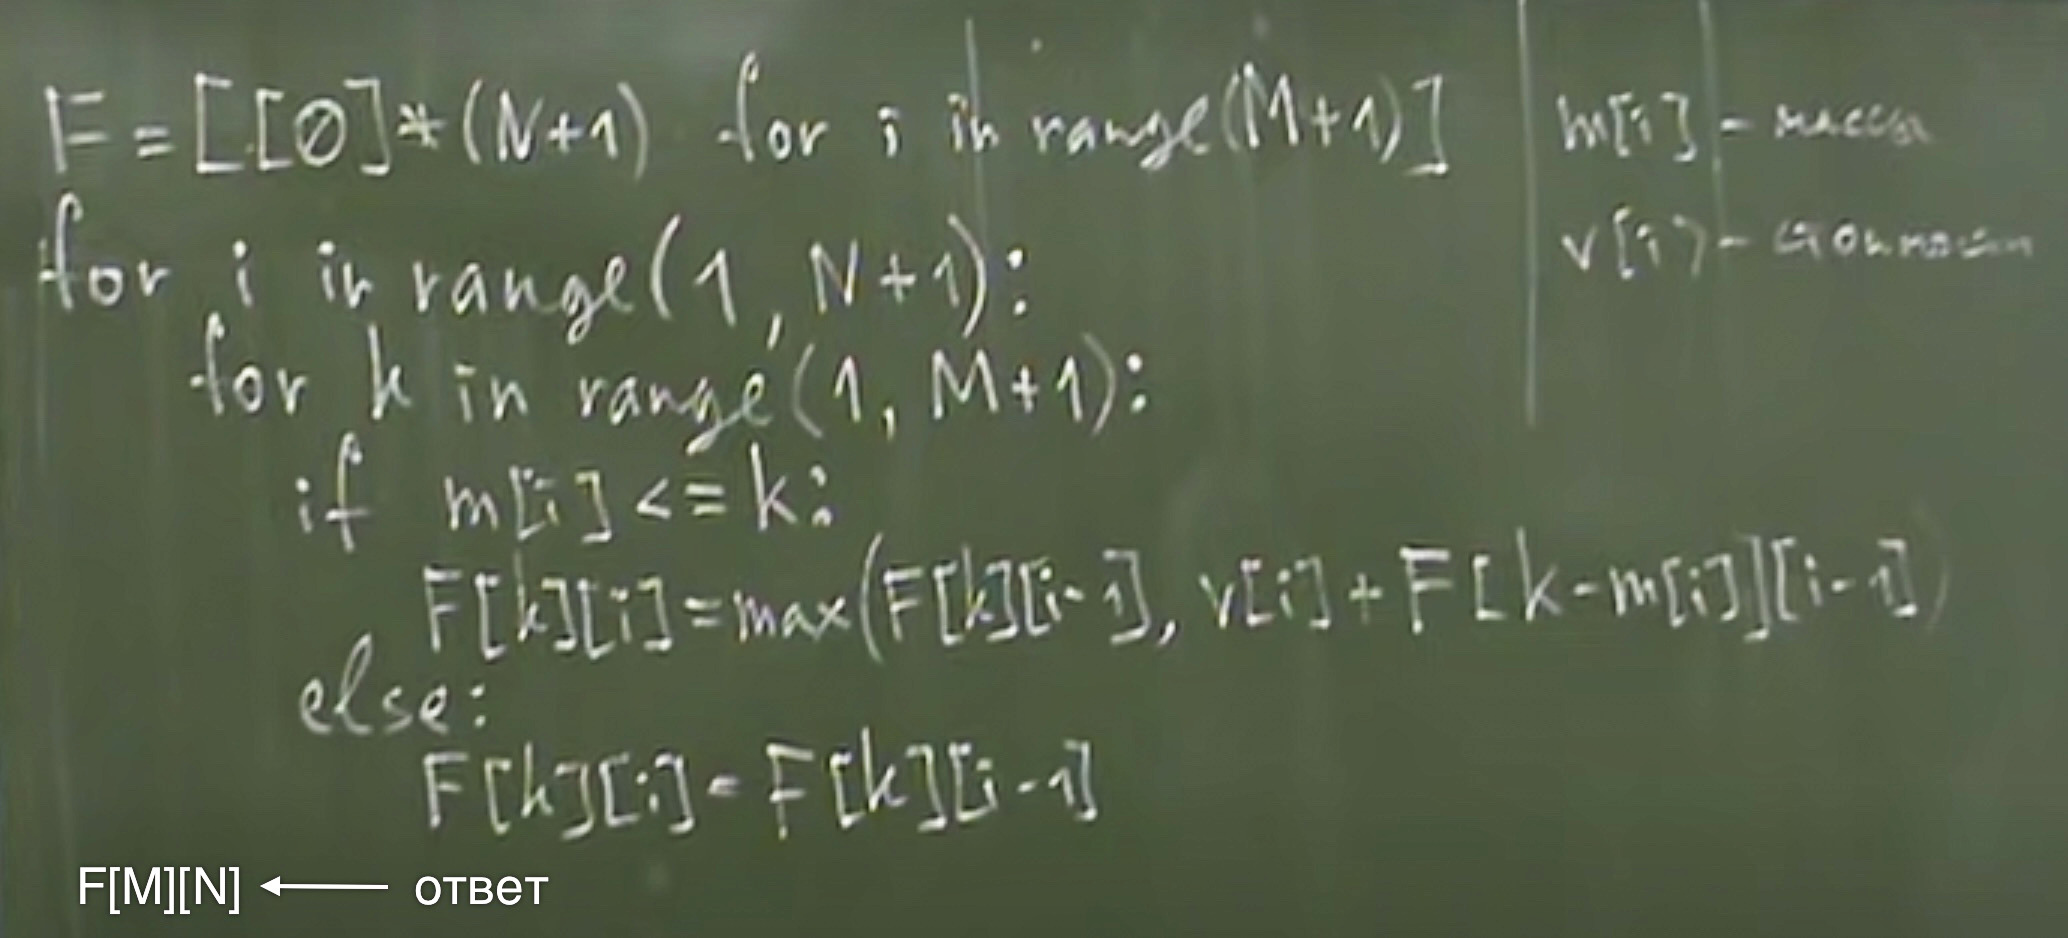 F = [[0]*(N+1) for i in range(M+1)]
for i in range(1, N+1):
for k in range(1, M+1):
if m[i] <= k:
F[k][i] = max(F[k][i-1], v[i] + F[k-m[i]][i-1])
else:
F[k][i] = F[k][i-1]
m[i] - массы
v[i] - стоимости
F[M][N] ← ответ